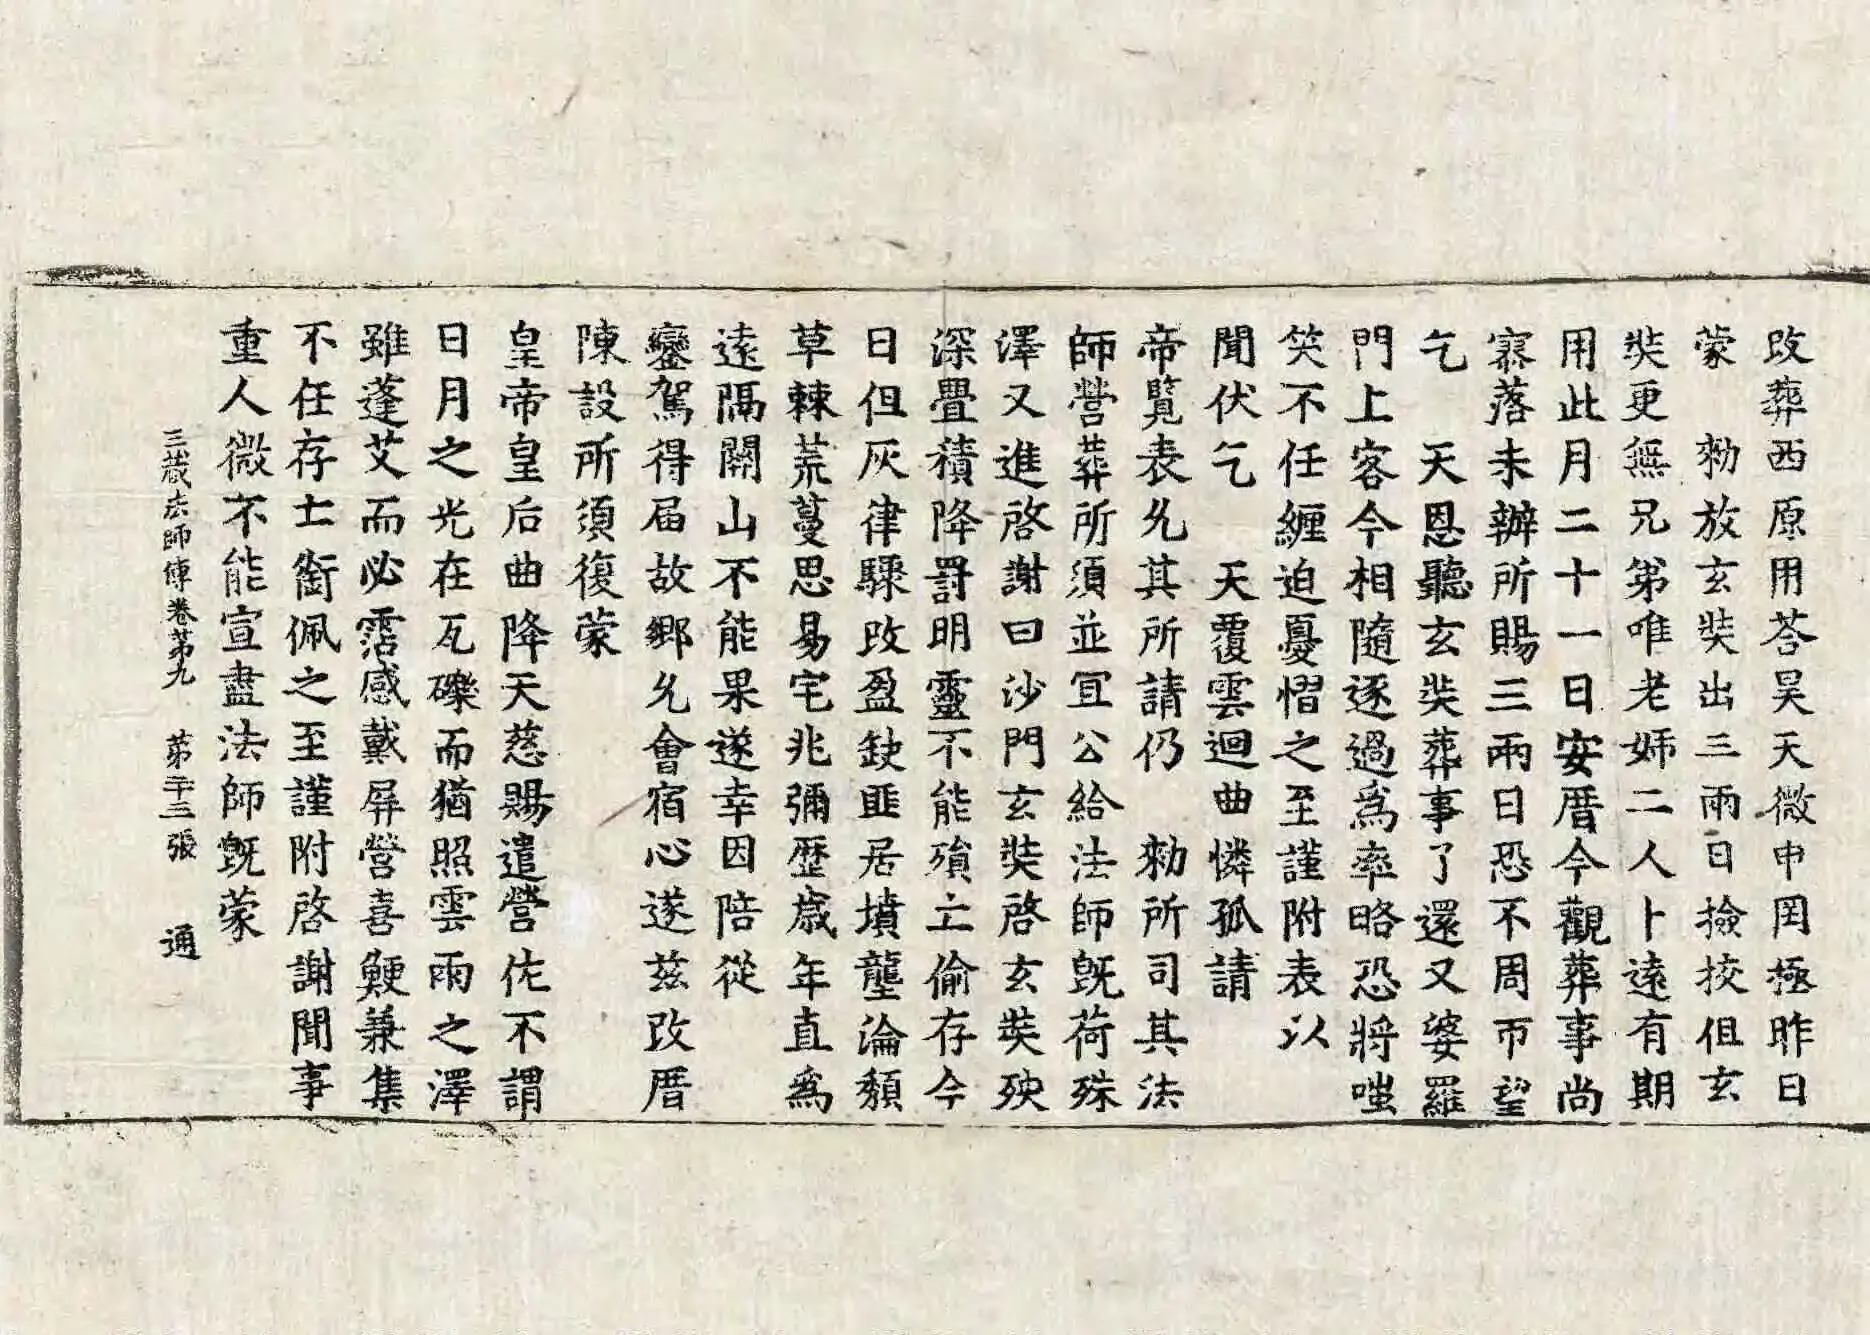 改葬西原用荅昊天微申罔極昨日
蒙　勑放玄奘出三兩日撿挍但玄
奘更無兄弟唯老姉二人卜遠有期
用此月二十一日安厝今觀葬事尚
寡落未辦所賜三兩日恐不周帀望
乞　天恩聽玄奘葬事了還又婆羅
門上客今相隨逐過爲率略恐將嗤
笑不任纏迫憂慴之至謹附表以
聞伏乞　天覆雲迴曲憐孤請
帝覽表允其所請仍　勑所司其法
師營葬所須並宜公給法師旣荷殊
澤又進啓謝曰沙門玄奘啓玄奘殃
深疊積降罰明靈不能殞亡偷存今
日但灰律驟改盈缺匪居墳壟淪頹
草棘荒蔓思易宅兆彌歷歲年直爲
遠隔關山不能果遂幸因陪從
鑾駕得届故鄉允會宿心遂茲改厝
陳設所須復蒙
皇帝皇后曲降天慈賜遣營佐不謂
日月之光在瓦礫而猶照雲雨之澤
雖蓬艾而必霑感戴屏營喜鯁兼集
不任存亡銜佩之至謹附啓謝聞事
重人微不能宣盡法師旣蒙
三藏法師傳卷第九　第二十三張　通